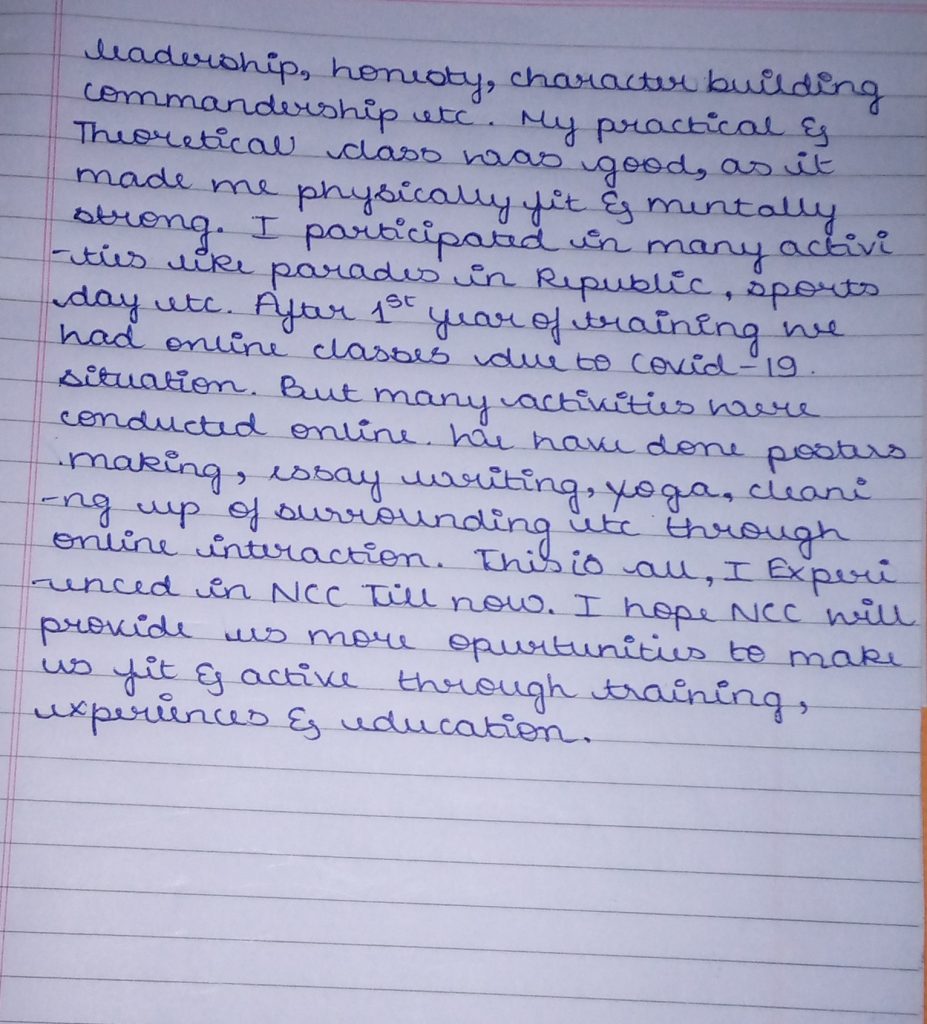 leadership, honesty, character building
commandership etc. My practical &
Theoretical class was good, as it
made me physically fit & mentally
strong. I participated in many activi
-ties like parades in Republic, sports
day etc. After 1st year of training we
had online classes due to Covid-19.
situation. But many activities were
conducted online. We have done posters
making, essay writing, yoga, cleani
-ng up of surrounding etc through
online interaction. This is all, I Experi
-enced in NCC Till now. I hope NCC will
provide us more opurtunities to make
us fit & active through training,
experiences & education.